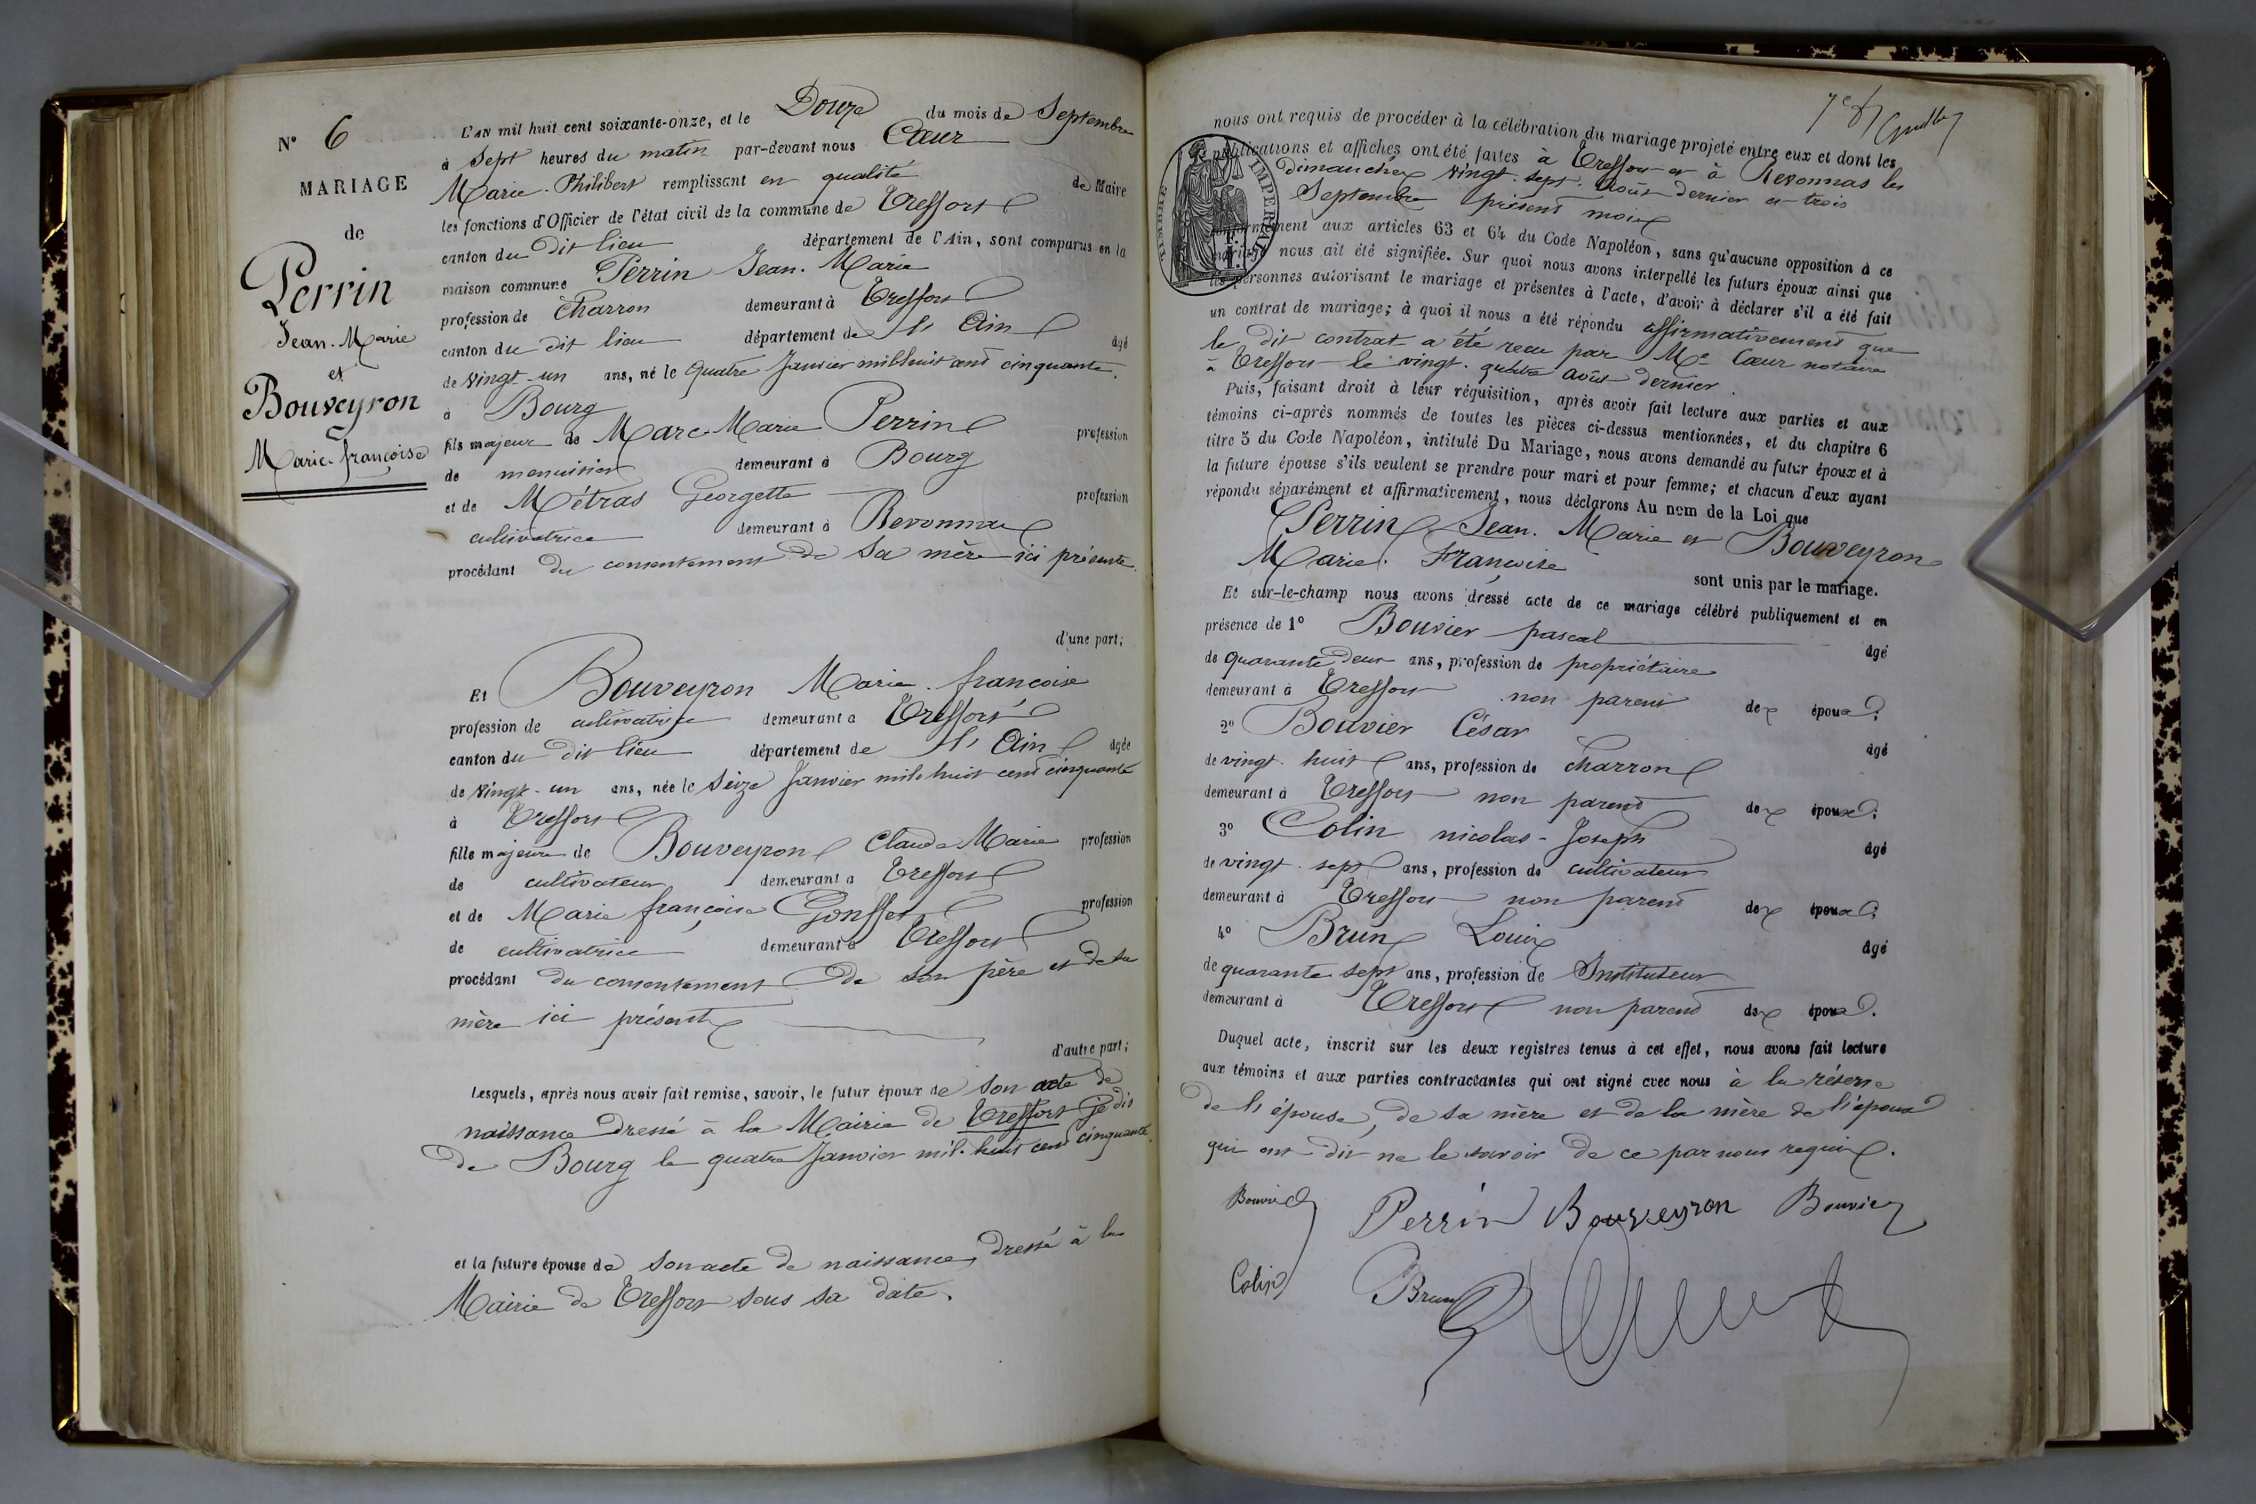 N° 6
MARIAGE
de
Perrin
Jean-Marie
et
Bouveyron
Marie-françoise
L'AN mil huit cent soixante-onze, et le Douze du mois de Septembre
à Sept heures du matin par-devant nous Cœur
Marie-Philibert remplissant en qualité de Maire
les fonctions d'Officier de l'état civil de la commune de Treffort
canton du dit lieu département de l'Ain, sont comparus en la
maison commune Perrin Jean-Marie
profession de charron demeurant à Treffort
canton du dit lieu département de l'Ain âgé
de vingt-un ans, né le quatre Janvier mil huit cent cinquante.
à Bourg
fils majeur de Marc Marie Perrin profession
de menuisier demeurant à Bourg
et de Métras Georgette profession
cultivatrice demeurant à Revonnas
procédant du consentement de sa mère ici présente.
d'une part;
Et Bouveyron Marie-françoise
profession de cultivatrice demeurant à Treffort
canton du dit lieu département de l'Ain âgée
de vingt-un ans, née le seize Janvier mil huit cent cinquante
à Treffort
fille majeure de Bouveyron Claude Marie profession
de cultivateur demeurant à Treffort
et de Marie françoise Gonffet profession
de cultivatrice demeurant à Treffort
procédant du consentement de son père et de sa
mère ici présents
d'autre part;
Lesquels, après nous avoir fait remise, savoir, le futur époux de son acte de
naissance dressé à la Mairie de Treffort je dis
de Bourg le quatre Janvier mil huit cent cinquante.
et la future épouse de son acte de naissance, dressé à la
Mairie de Treffort sous sa date.
nous ont requis de procéder à la célébration du mariage projeté entre eux et dont les
publications et affiches ont été faites à Treffort et à Revonnas les
dimanches vingt-sept Août dernier et trois
Septembre présent mois
TIMBRE IMPERIAL
conformément aux articles 63 et 64 du Code Napoléon, sans qu'aucune opposition à ce
mariage nous ait été signifiée. Sur quoi nous avons interpellé les futurs époux ainsi que
les personnes autorisant le mariage et présentes à l'acte, d'avoir à déclarer s'il a été fait
un contrat de mariage; à quoi il nous a été répondu affirmativement que
le dit contrat a été reçu par Me Cœur notaire
à Treffort le vingt-quatre août dernier.
Puis, faisant droit à leur réquisition, après avoir fait lecture aux parties et aux
témoins ci-après nommés de toutes les pièces ci-dessus mentionnées, et du chapitre 6
titre 5 du Code Napoléon, intitulé Du Mariage, nous avons demandé au futur époux et à
la future épouse s'ils veulent se prendre pour mari et pour femme; et chacun d'eux ayant
répondu séparément et affirmativement, nous déclarons Au nom de la Loi que
Perrin Jean-Marie et Bouveyron
Marie-Françoise sont unis par le mariage.
Et sur-le-champ nous avons dressé acte de ce mariage célébré publiquement et en
présence de 1° Bouvier pascal âgé
de quarante deux ans, profession de propriétaire
demeurant à Treffort non parent des époux;
2° Bouvier César âgé
de vingt-huit ans, profession de charron
demeurant à Treffort non parent des époux;
3° Colin nicolas-Joseph âgé
de vingt-sept ans, profession de cultivateur
demeurant à Treffort non parent des époux;
4° Brun Louis âgé
de quarante sept ans, profession de Instituteur
demeurant à Treffort non parent des époux.
Duquel acte, inscrit sur les deux registres tenus à cet effet, nous avons fait lecture
aux témoins et aux parties contractantes qui ont signé avec nous à la réserve
de l'épouse, de sa mère et de la mère de l'époux
qui ont dit ne le savoir de ce par nous requis.
Bouvier Perrin Bouveyron Bouvier
Colin Brun Cœur